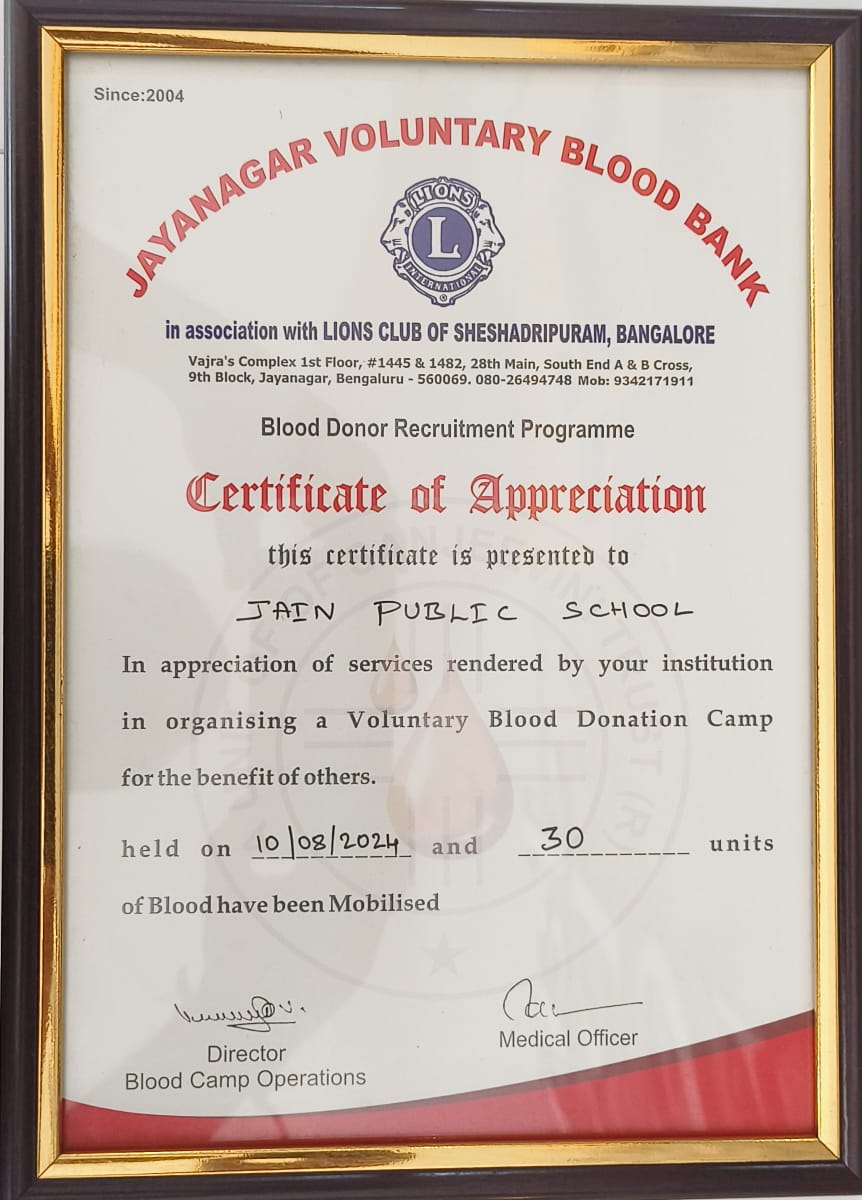 Since:2004
JAYANAGAR VOLUNTARY BLOOD BANK
LIONS
L
INTERNATIONAL
in association with LIONS CLUB OF SHESHADRIPURAM, BANGALORE
Vajra's Complex 1st Floor, #1445 & 1482, 28th Main, South End A & B Cross,
9th Block, Jayanagar, Bengaluru - 560069. 080-26494748 Mob: 9342171911
Blood Donor Recruitment Programme
Certificate of Appreciation
this certificate is presented to
JAIN PUBLIC SCHOOL
In appreciation of services rendered by your institution
in organising a Voluntary Blood Donation Camp
for the benefit of others.
held on 10/08/2024 and 30 units
of Blood have been Mobilised
Director
Blood Camp Operations
Medical Officer
A UNIT OF SANJEEVINI TRUST (R)